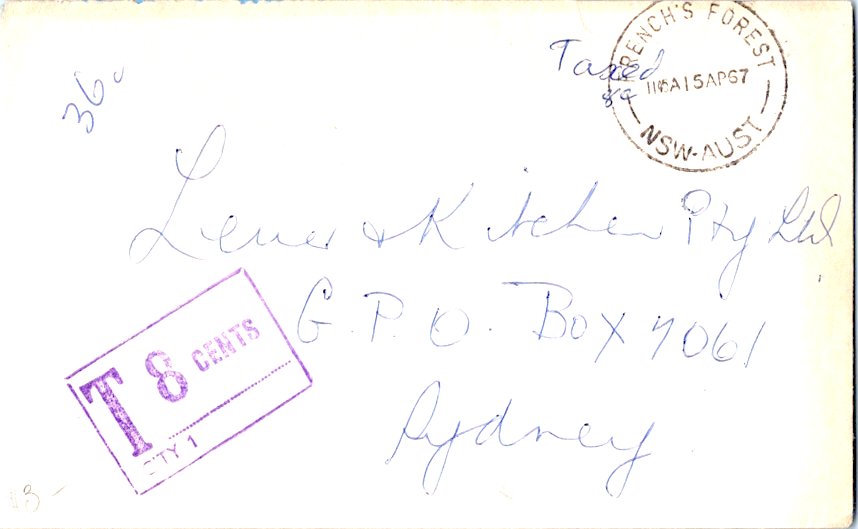 36c
Taxed
8c
FRENCH'S FOREST
15AP67
NSW-AUST
Lever & Kitchen Pty Ltd
G.P.O. Box 7061
Sydney
T 8 CENTS
CTY 1